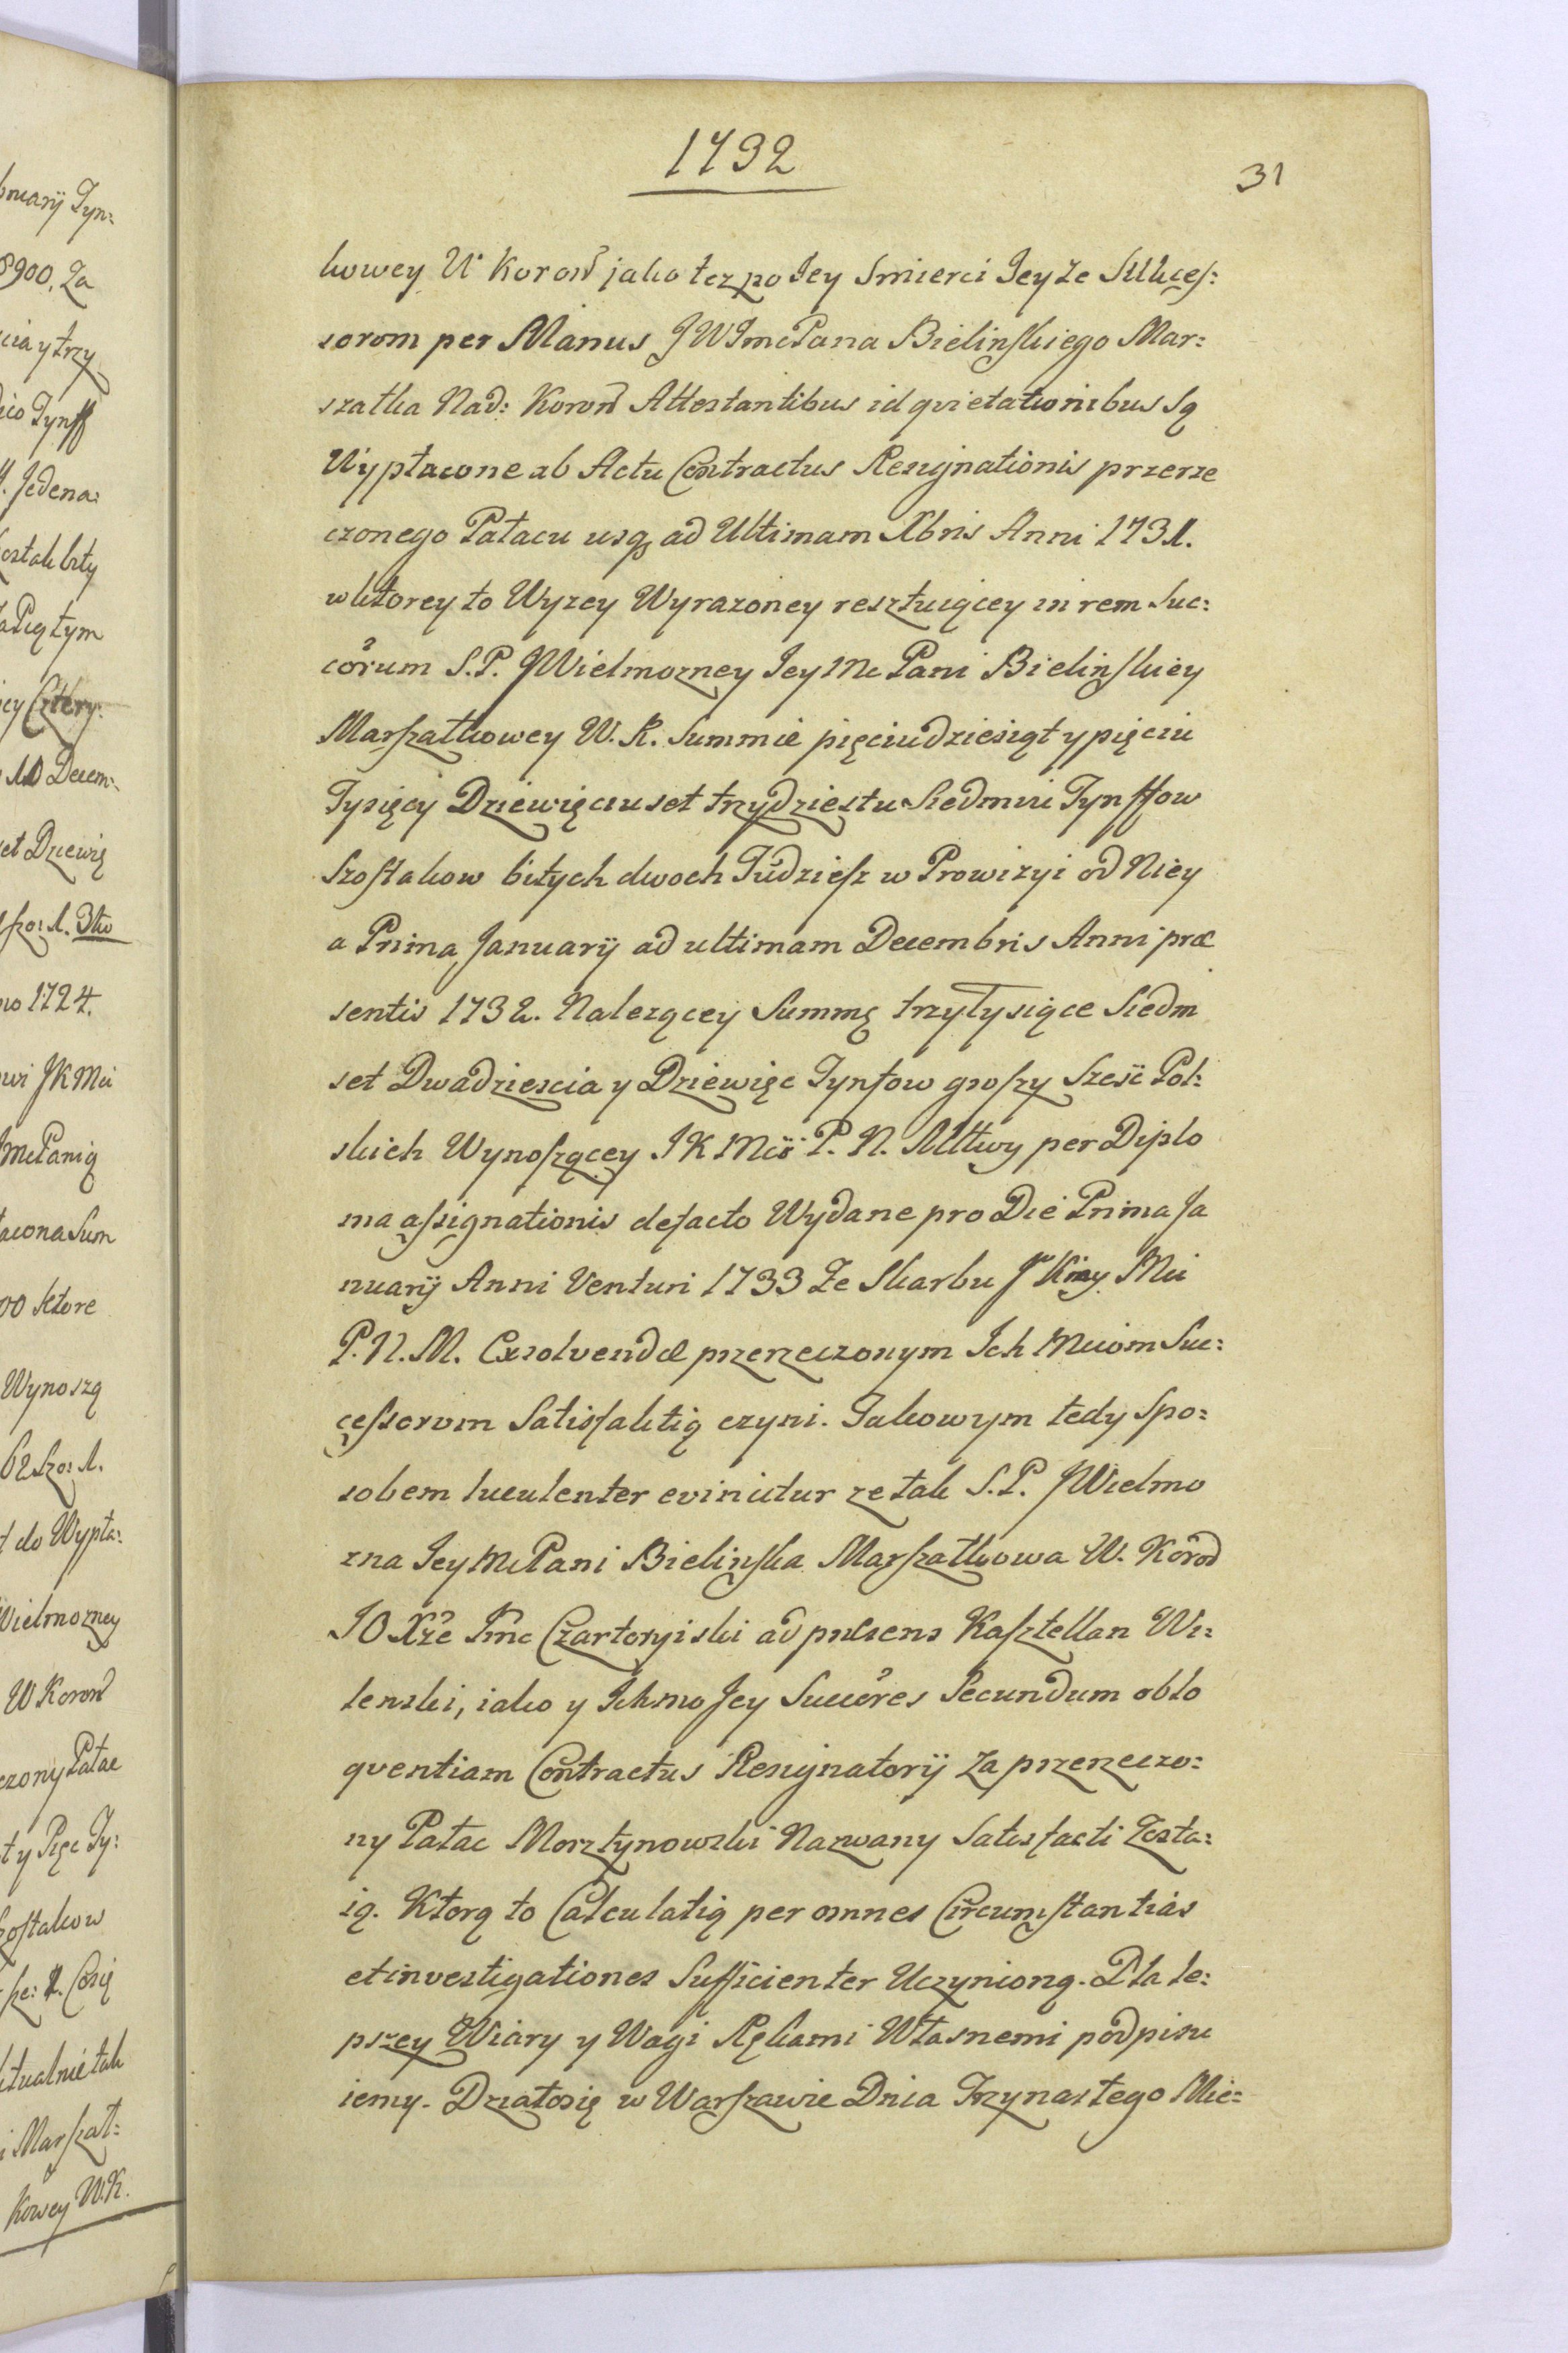 1732
31
kowey W Koron jako tez po Jey Smierci Jey Ze Sukces:
sorom per Manus JWImcPana Bielinskiego Mar:
szałka Nad: Koron Attestantibus id qvietationibus Są
Wypłacone ab Actu Contractus Resignationis przerze
czonego Pałacu usq ad Ultimam Xbris Anni 1731.
w ktorey to Wyzey Wyrazoney resztuiącey in rem Suc:
córum S.P. JWielmozney Jey Mc Pani Bielinskiey
Marszałkowey W. K. Summie pięciudziesiąt y pięciu
Tysięcy Dziewięciuset trzydziestu Siedmiu Tynffow
Szostakow bitych dwoch Tudziesz w Prowizyi od Niey
a Prima January ad ultimam Decembris Anni præ
sentis 1732. Nalezącey Summę trzy tysiące Siedm
set Dwadziescia y Dziewięc Tynfow groszy Szesc Pol:
skich Wynoszącey JKMci P. N. Mttwy per Diplo
ma assignationis defacto Wydane pro Die Prima Ja
nuarij Anni Venturi 1733 Ze Skarbu JKrey Mci
P.N.M. Exsolvendæ przerzeczonym Ich Mciom Suc:
cessorum Satisfaktią czyni. Takowym tedy Spo:
sobem luculenter evincitur ze tak S.P. JWielmo
zna Jey McPani Bielinska Marszałkowa W. Koron
JO Xże Jmc Czartoryiski ad præsens Kasztellan Wi:
lenski, iako y Ichmo Jey Succóres Secundum oblo
qventiam Contractus Resignatorij Za przerzeczo:
ny Pałac Morsztynowski Nazwany Satisfacti Zosta:
ią. Ktorą to Calculatią per omnes Circumstantias
et investigationes Sufficienter Uczynioną. Dla le:
pszey Wiary y Wagi Rękami Własnemi podpisu
iemy. Działosię w Warszawie Dnia Trzynastego Mie: